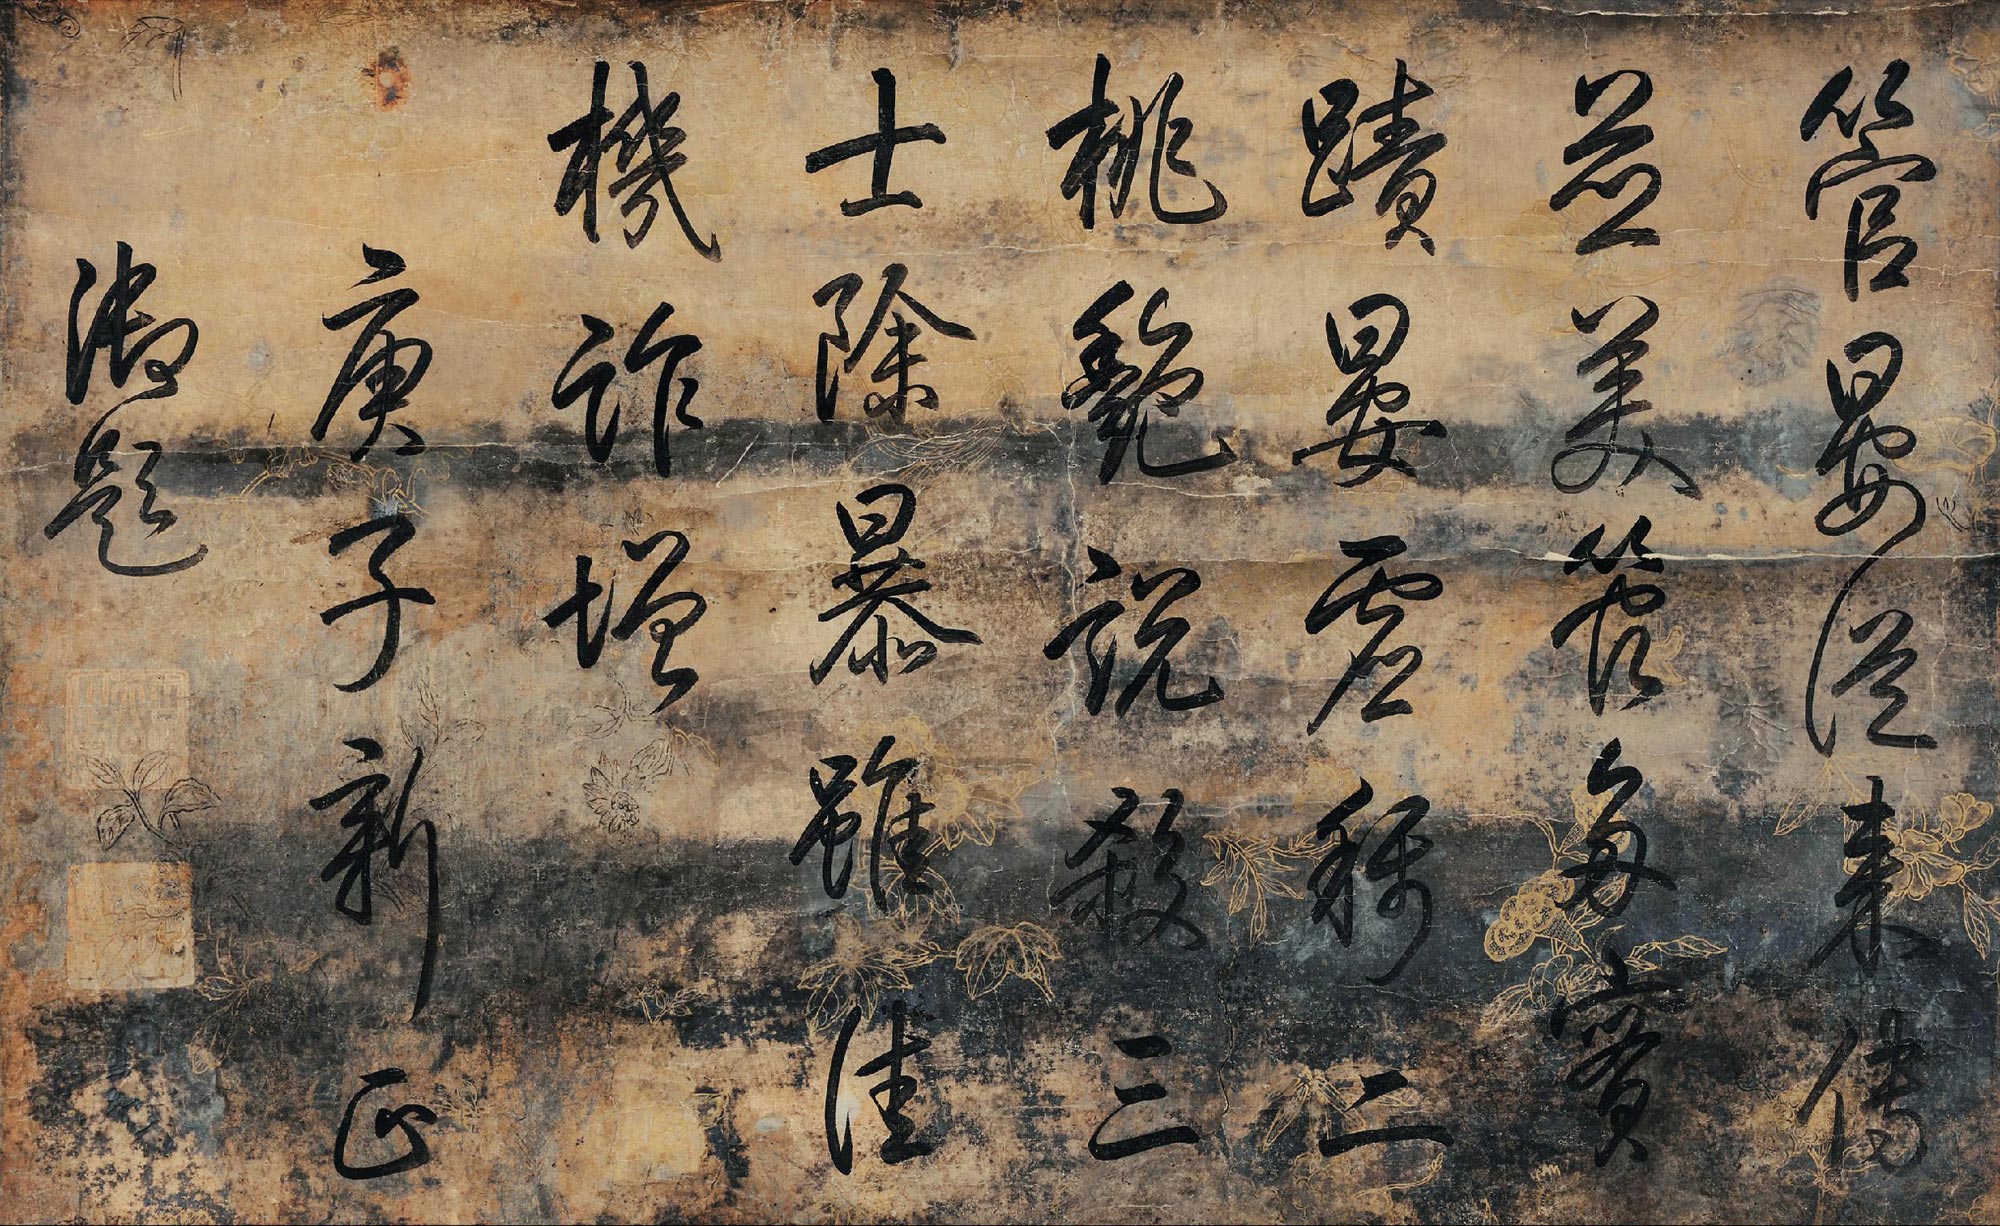 管晏從來傳
並美管多實
蹟晏虛稱二
桃艷說殺三
士除暴雖佳
機詐增
庚子新正
御題